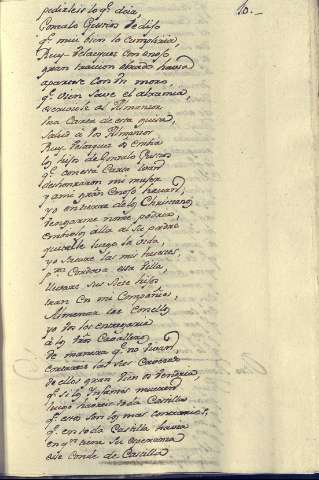 10.-
pedirleis lo q.e decia
Gonzalo Gustios le dijo
q.e mui bien lo cumpliria,
Ruy Velazquez con enojo
gran traicion obrado havia
aparese con un moro
q.e bien save el abramia,
escriviole al Almanzor
una Carta de esta guisa,
Salud a los Almanzor
Ruy Velazquez os envia
los hijos de Gonzalo Gustios
q.e con esta Carta
deshonraron mi muger
y a mi gran enojo hacian,
yo en tierra de los Christianos
vengarme no me podria,
embiolo alla al su padre
quitalde luego la vida,
yo sacare las mis huestes,
p.ra Cordova esta Villa,
llevare sus siete hijos
iran en mi Compañia,
Almenara con ellos
yo los entregaria
a los
de manera q.e no huian,
cortares las sus Cavezas
de ellos gran bien os vendria,
q.e si los Infantes mueren
luego havreis toda Castilla
q.e estos son los mas contrarios,
q.e en toda Castilla havia
en q.n tiene su esperanza
ese Conde de Castilla